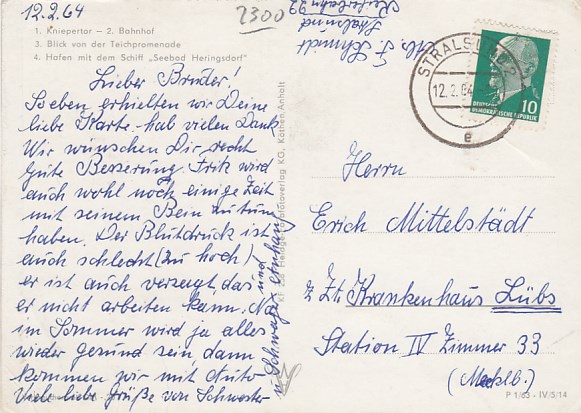 12.2.64
2300
1. Kniepertor – 2. Bahnhof
3. Blick von der Teichpromenade
4. Hafen mit dem Schiff „Seebad Heringsdorf"
Lieber Bruder!
Soeben erhielten wir Deine
liebe Karte - hab vielen Dank
Wir wünschen Dir recht
gute Besserung. Fritz wird
auch wohl noch einige Zeit
mit seinem Bein zutun
haben. Der Blutdruck ist
auch schlecht (zu hoch)
er ist auch verzagt, das
er nicht arbeiten kann. Na
im Sommer wird ja alles
wieder gesund sein, dann
kommen wir mit Auto
Viele liebe Grüße von Schwester
u. Schwager und
KG, Köthen, Anhalt
Abs. F. Schmidt
Stralsund
STRALSUND
12.2.64
e
DEUTSCHE
DEMOKRATISCHE REPUBLIK
10
Herrn
Erich Mittelstädt
z. Zt. Krankenhaus Lübs
Station IV Zimmer 33
(Mecklb.)
P 1/63 - IV/5/14